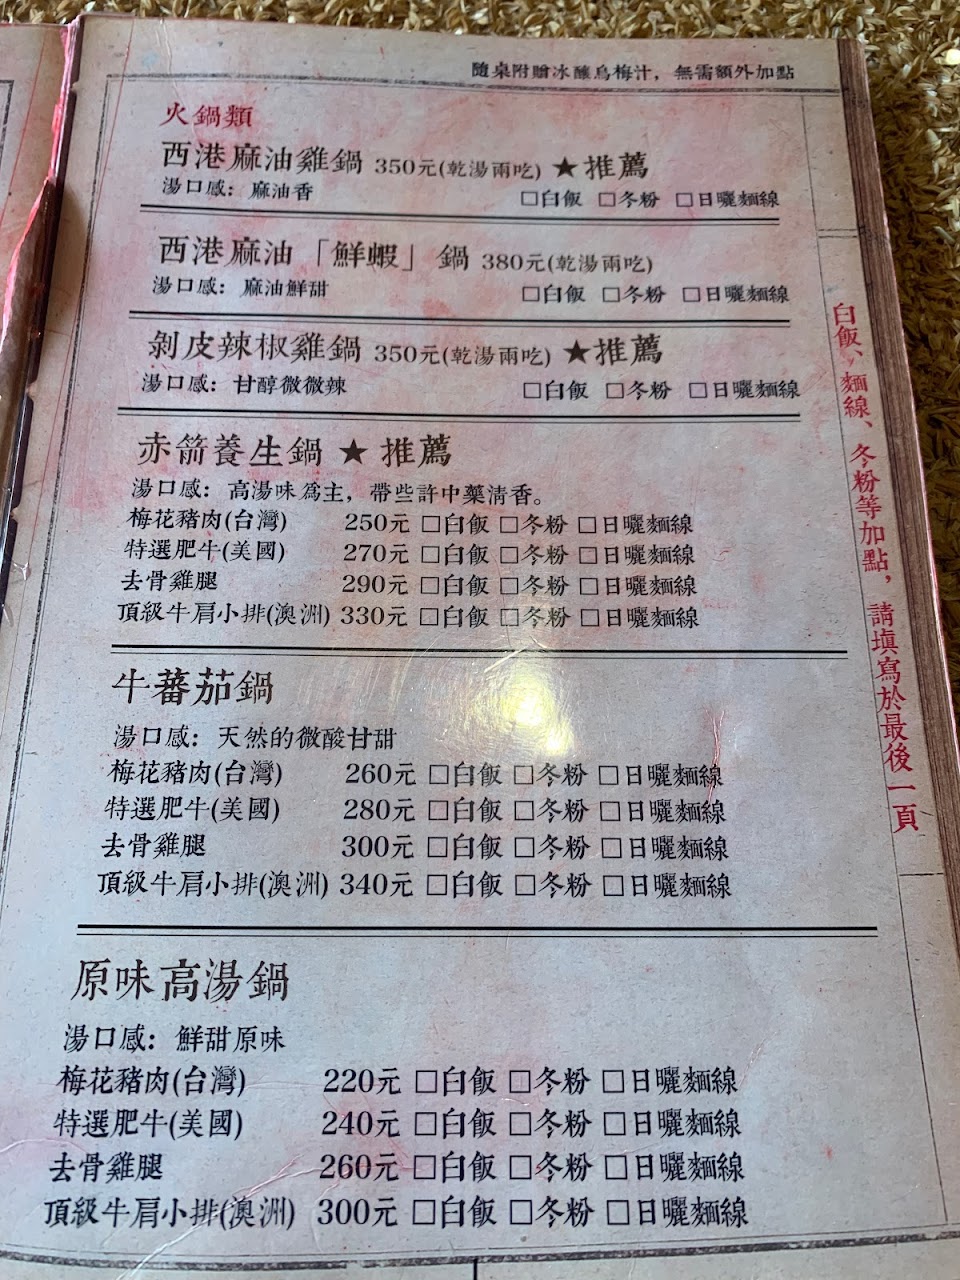 隨桌附贈冰釀烏梅汁，無需額外加點
火鍋類
西港麻油雞鍋 350元(乾湯兩吃) ★推薦
湯口感：麻油香 □白飯 □冬粉 □日曬麵線
西港麻油「鮮蝦」鍋 380元(乾湯兩吃)
湯口感：麻油鮮甜 □白飯 □冬粉 □日曬麵線
剝皮辣椒雞鍋 350元(乾湯兩吃) ★推薦
湯口感：甘醇微微辣 □白飯 □冬粉 □日曬麵線
赤箭養生鍋 ★ 推薦
湯口感：高湯味為主，帶些許中藥清香。
梅花豬肉(台灣) 250元 □白飯 □冬粉 □日曬麵線
特選肥牛(美國) 270元 □白飯 □冬粉 □日曬麵線
去骨雞腿 290元 □白飯 □冬粉 □日曬麵線
頂級牛肩小排(澳洲) 330元 □白飯 □冬粉 □日曬麵線
牛蕃茄鍋
湯口感：天然的微酸甘甜
梅花豬肉(台灣) 260元 □白飯 □冬粉 □日曬麵線
特選肥牛(美國) 280元 □白飯 □冬粉 □日曬麵線
去骨雞腿 300元 □白飯 □冬粉 □日曬麵線
頂級牛肩小排(澳洲) 340元 □白飯 □冬粉 □日曬麵線
原味高湯鍋
湯口感：鮮甜原味
梅花豬肉(台灣) 220元 □白飯 □冬粉 □日曬麵線
特選肥牛(美國) 240元 □白飯 □冬粉 □日曬麵線
去骨雞腿 260元 □白飯 □冬粉 □日曬麵線
頂級牛肩小排(澳洲) 300元 □白飯 □冬粉 □日曬麵線
白飯、麵線、冬粉等加點，請填寫於最後一頁